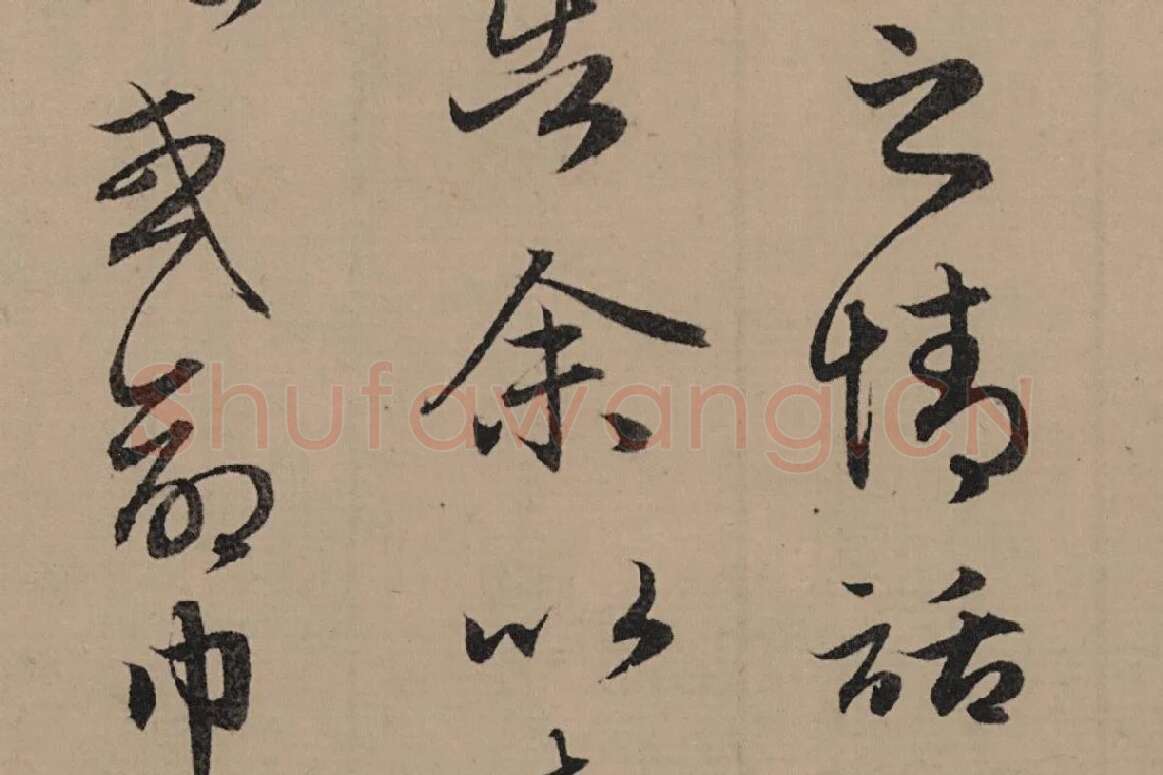 之情話
告余以
或命巾
Shufawang.CN